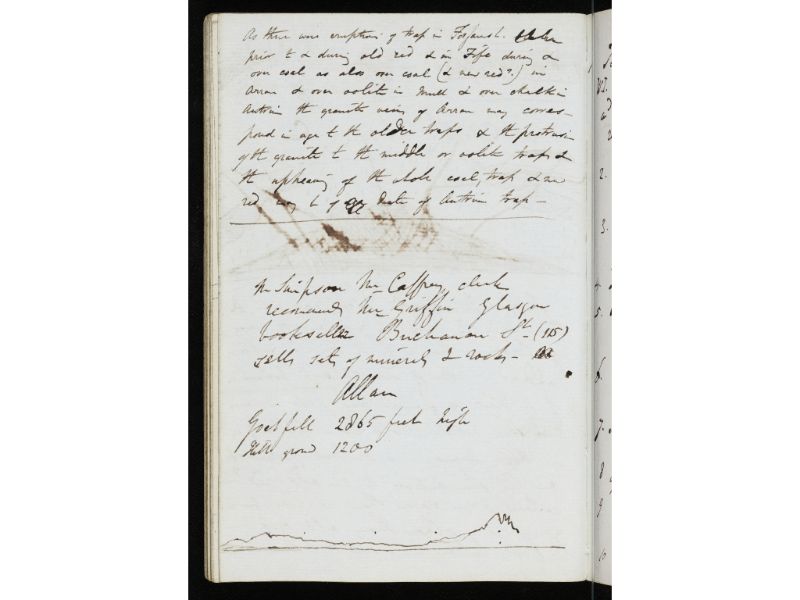 As there were eruptions of trap in Forfarsh.
prior to & during old red & in Fife during &
over coal as also over coal (& new red?) in
Arran & over oolite in Mull & over chalk in
Antrim the granite veins of Arran may corres-
pond in age to the older traps & the protrusion
of the granite to the middle or oolite traps &
the upheaving of the whole coal, trap & new
red may be of date of Antrim trap -
Mr Simpson Mr Caffrey, clerk
recommends Mr Griffin Glasgow
bookseller Buchanan St. (115)
sells sets of minerals & rocks -
Allan
Goatfell 2865 feet high
ground 1200
2.
3.
4
5.
6.
7.
8
9
10